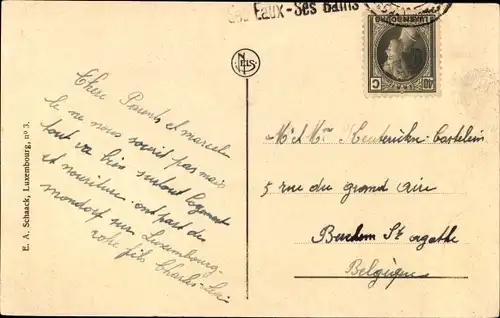 Ses Eaux - Ses Bains
LUXEMBOURG
40 C
NELS
E. A. Schaack, Luxembourg, nº 3.
Chers Parents et marcel
le ne nous sourit pas mais
tout va bien surtout logement
et nouriture. ont part de
mondorf sur Luxembourg
votre fils Charles
Mr et Mme
5 rue du grand air
Berchem St agathe
Belgique